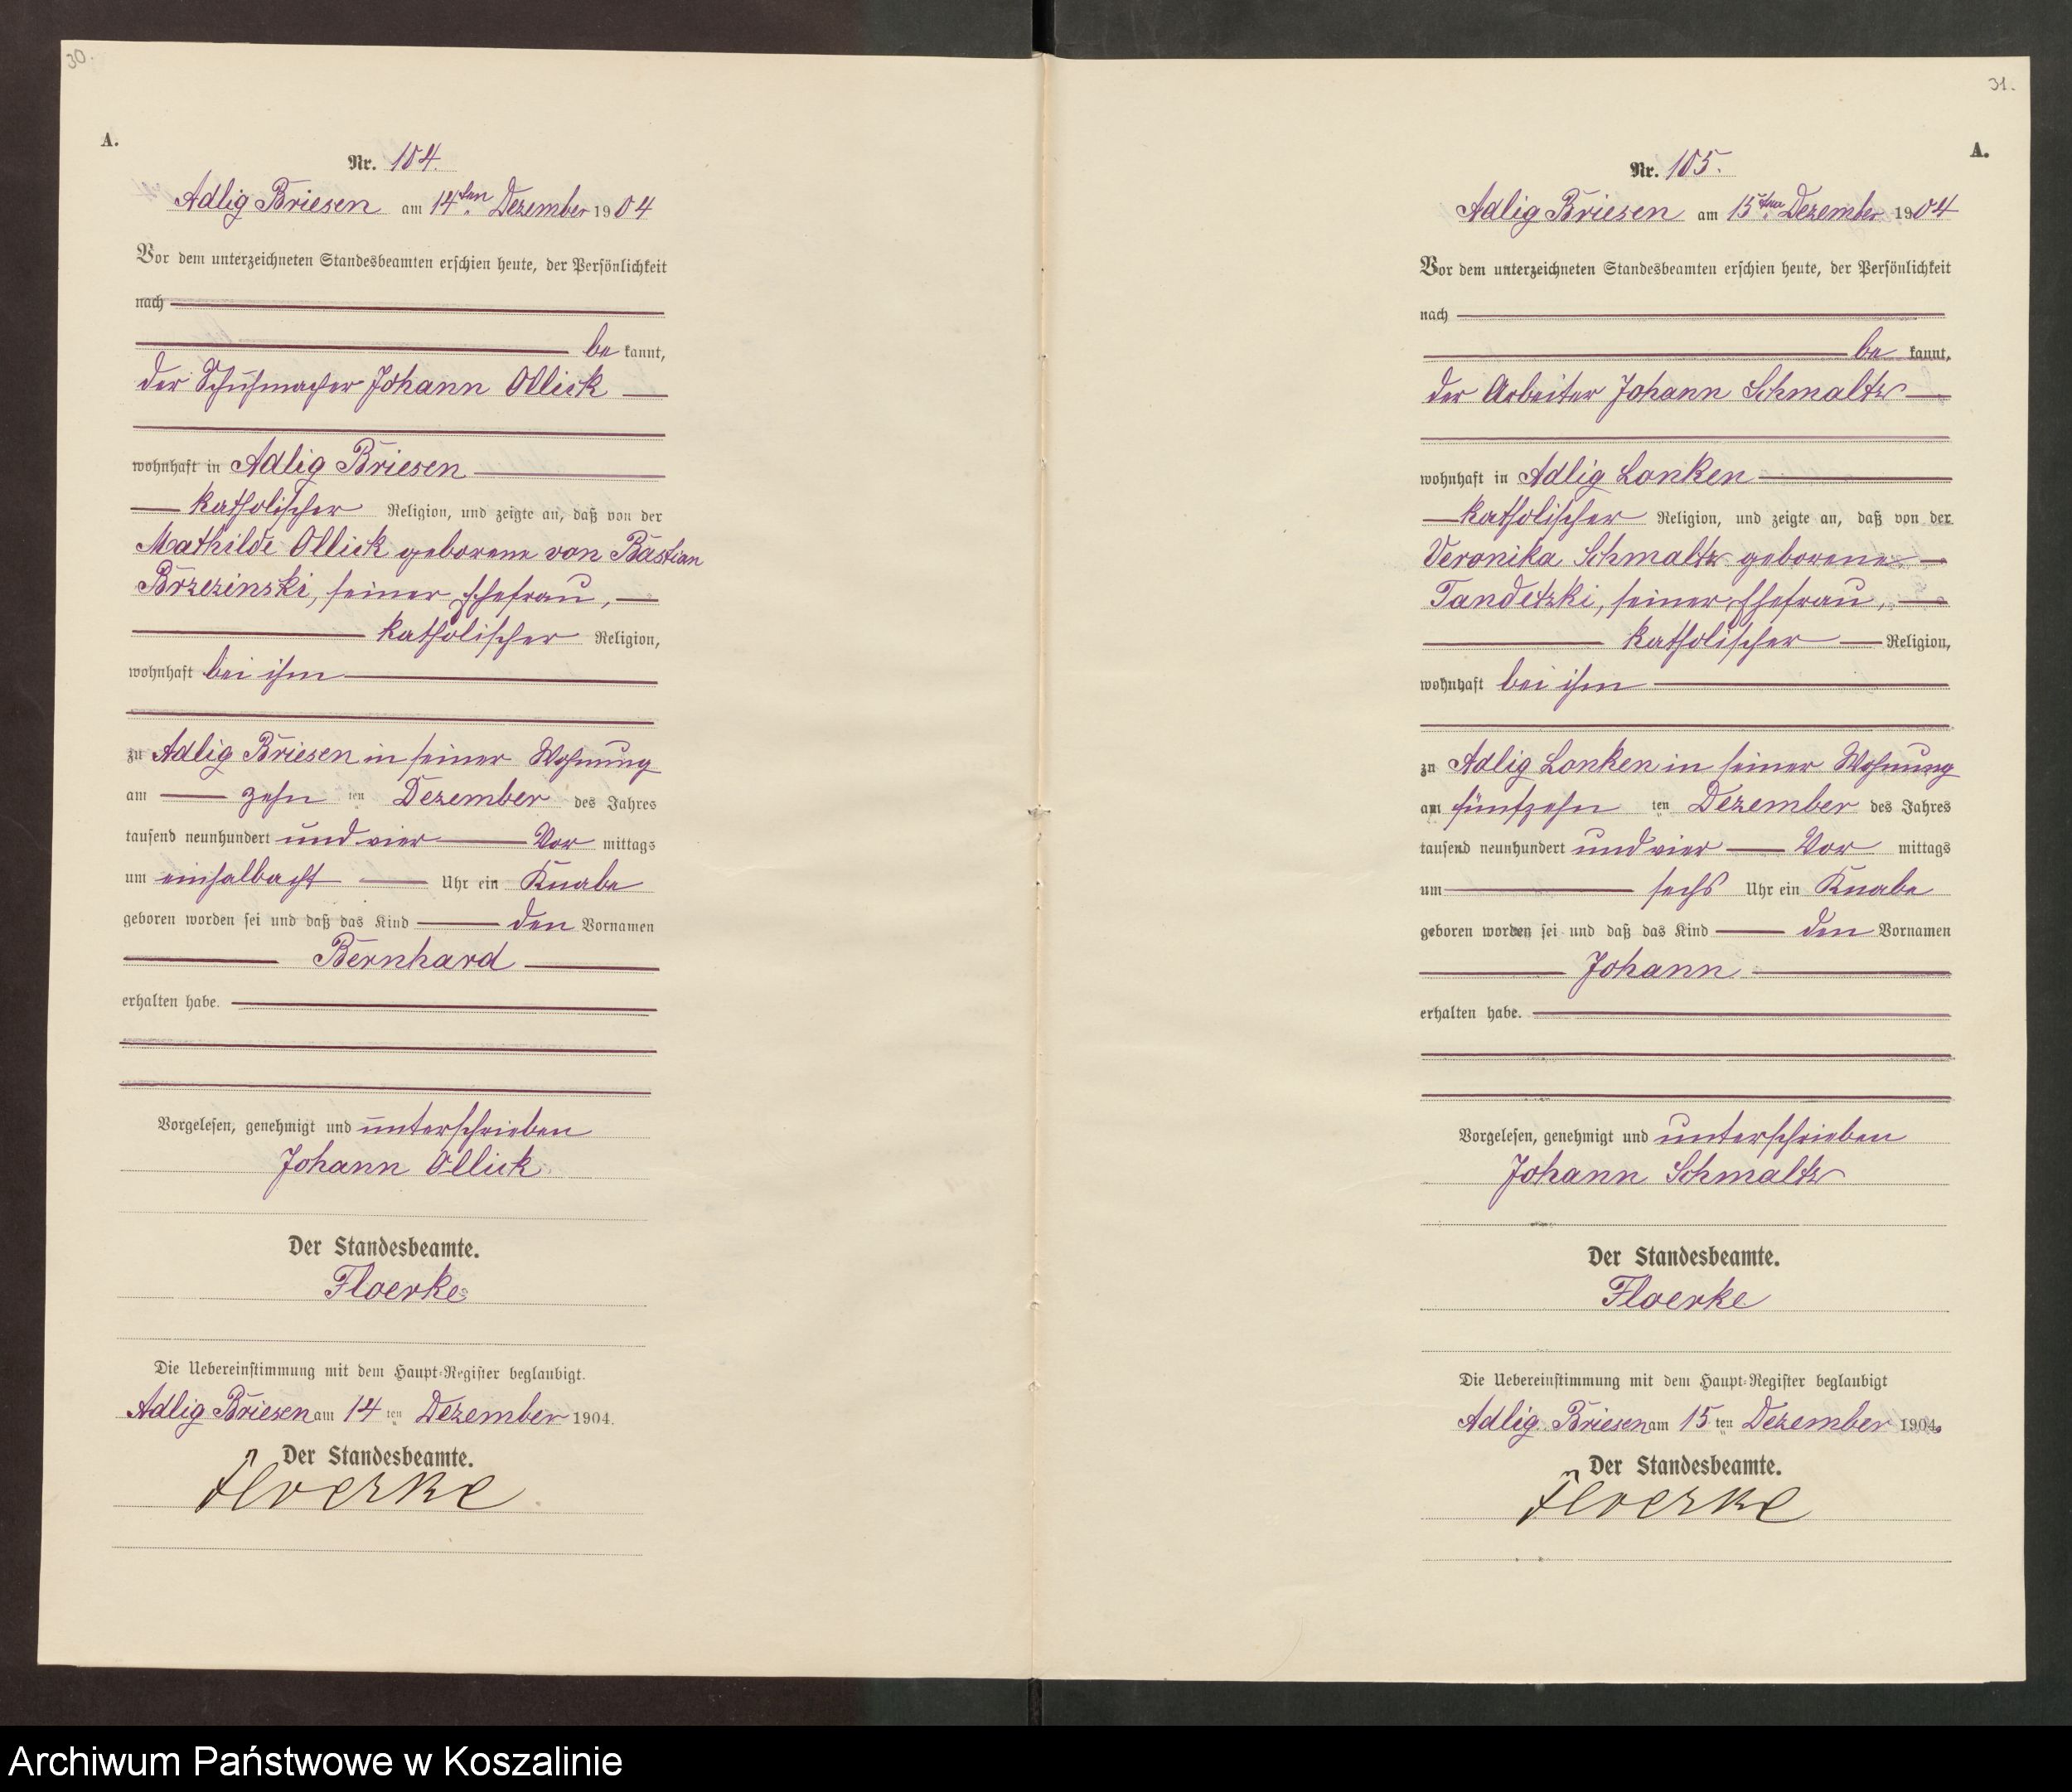 30.
A.
Nr. 104.
Adlig Briesen am 14ten Dezember 1904
Vor dem unterzeichneten Standesbeamten erschien heute, der Persönlichkeit
nach
be kannt,
der Schuhmacher Johann Ollick
wohnhaft in Adlig Briesen
katholischer Religion, und zeigte an, daß von der
Mathilde Ollick geborene von Bastian
Brzezinski, seiner Ehefrau,
katholischer Religion,
wohnhaft bei ihm
zu Adlig Briesen in seiner Wohnung
am zehn ten Dezember des Jahres
tausend neunhundert und vier Vor mittags
um einhalbacht Uhr ein Knabe
geboren worden sei und daß das Kind den Vornamen
Bernhard
erhalten habe.
Vorgelesen, genehmigt und unterschrieben
Johann Ollick
Der Standesbeamte.
Floerke
Die Uebereinstimmung mit dem Haupt-Register beglaubigt.
Adlig Briesen am 14 ten Dezember 1904.
Der Standesbeamte.
Floerke
31.
A.
Nr. 105.
Adlig Briesen am 15ten Dezember 1904
Vor dem unterzeichneten Standesbeamten erschien heute, der Persönlichkeit
nach
be kannt,
der Arbeiter Johann Schmaltz
wohnhaft in Adlig Lonken
katholischer Religion, und zeigte an, daß von der
Veronika Schmaltz geborene
Tandetzki, seiner Ehefrau,
katholischer Religion,
wohnhaft bei ihm
zu Adlig Lonken in seiner Wohnung
am fünfzehn ten Dezember des Jahres
tausend neunhundert und vier Vor mittags
um sechs Uhr ein Knabe
geboren worden sei und daß das Kind den Vornamen
Johann
erhalten habe.
Vorgelesen, genehmigt und unterschrieben
Johann Schmaltz
Der Standesbeamte.
Floerke
Die Uebereinstimmung mit dem Haupt-Register beglaubigt
Adlig Briesen am 15 ten Dezember 1904.
Der Standesbeamte.
Floerke
Archiwum Państwowe w Koszalinie